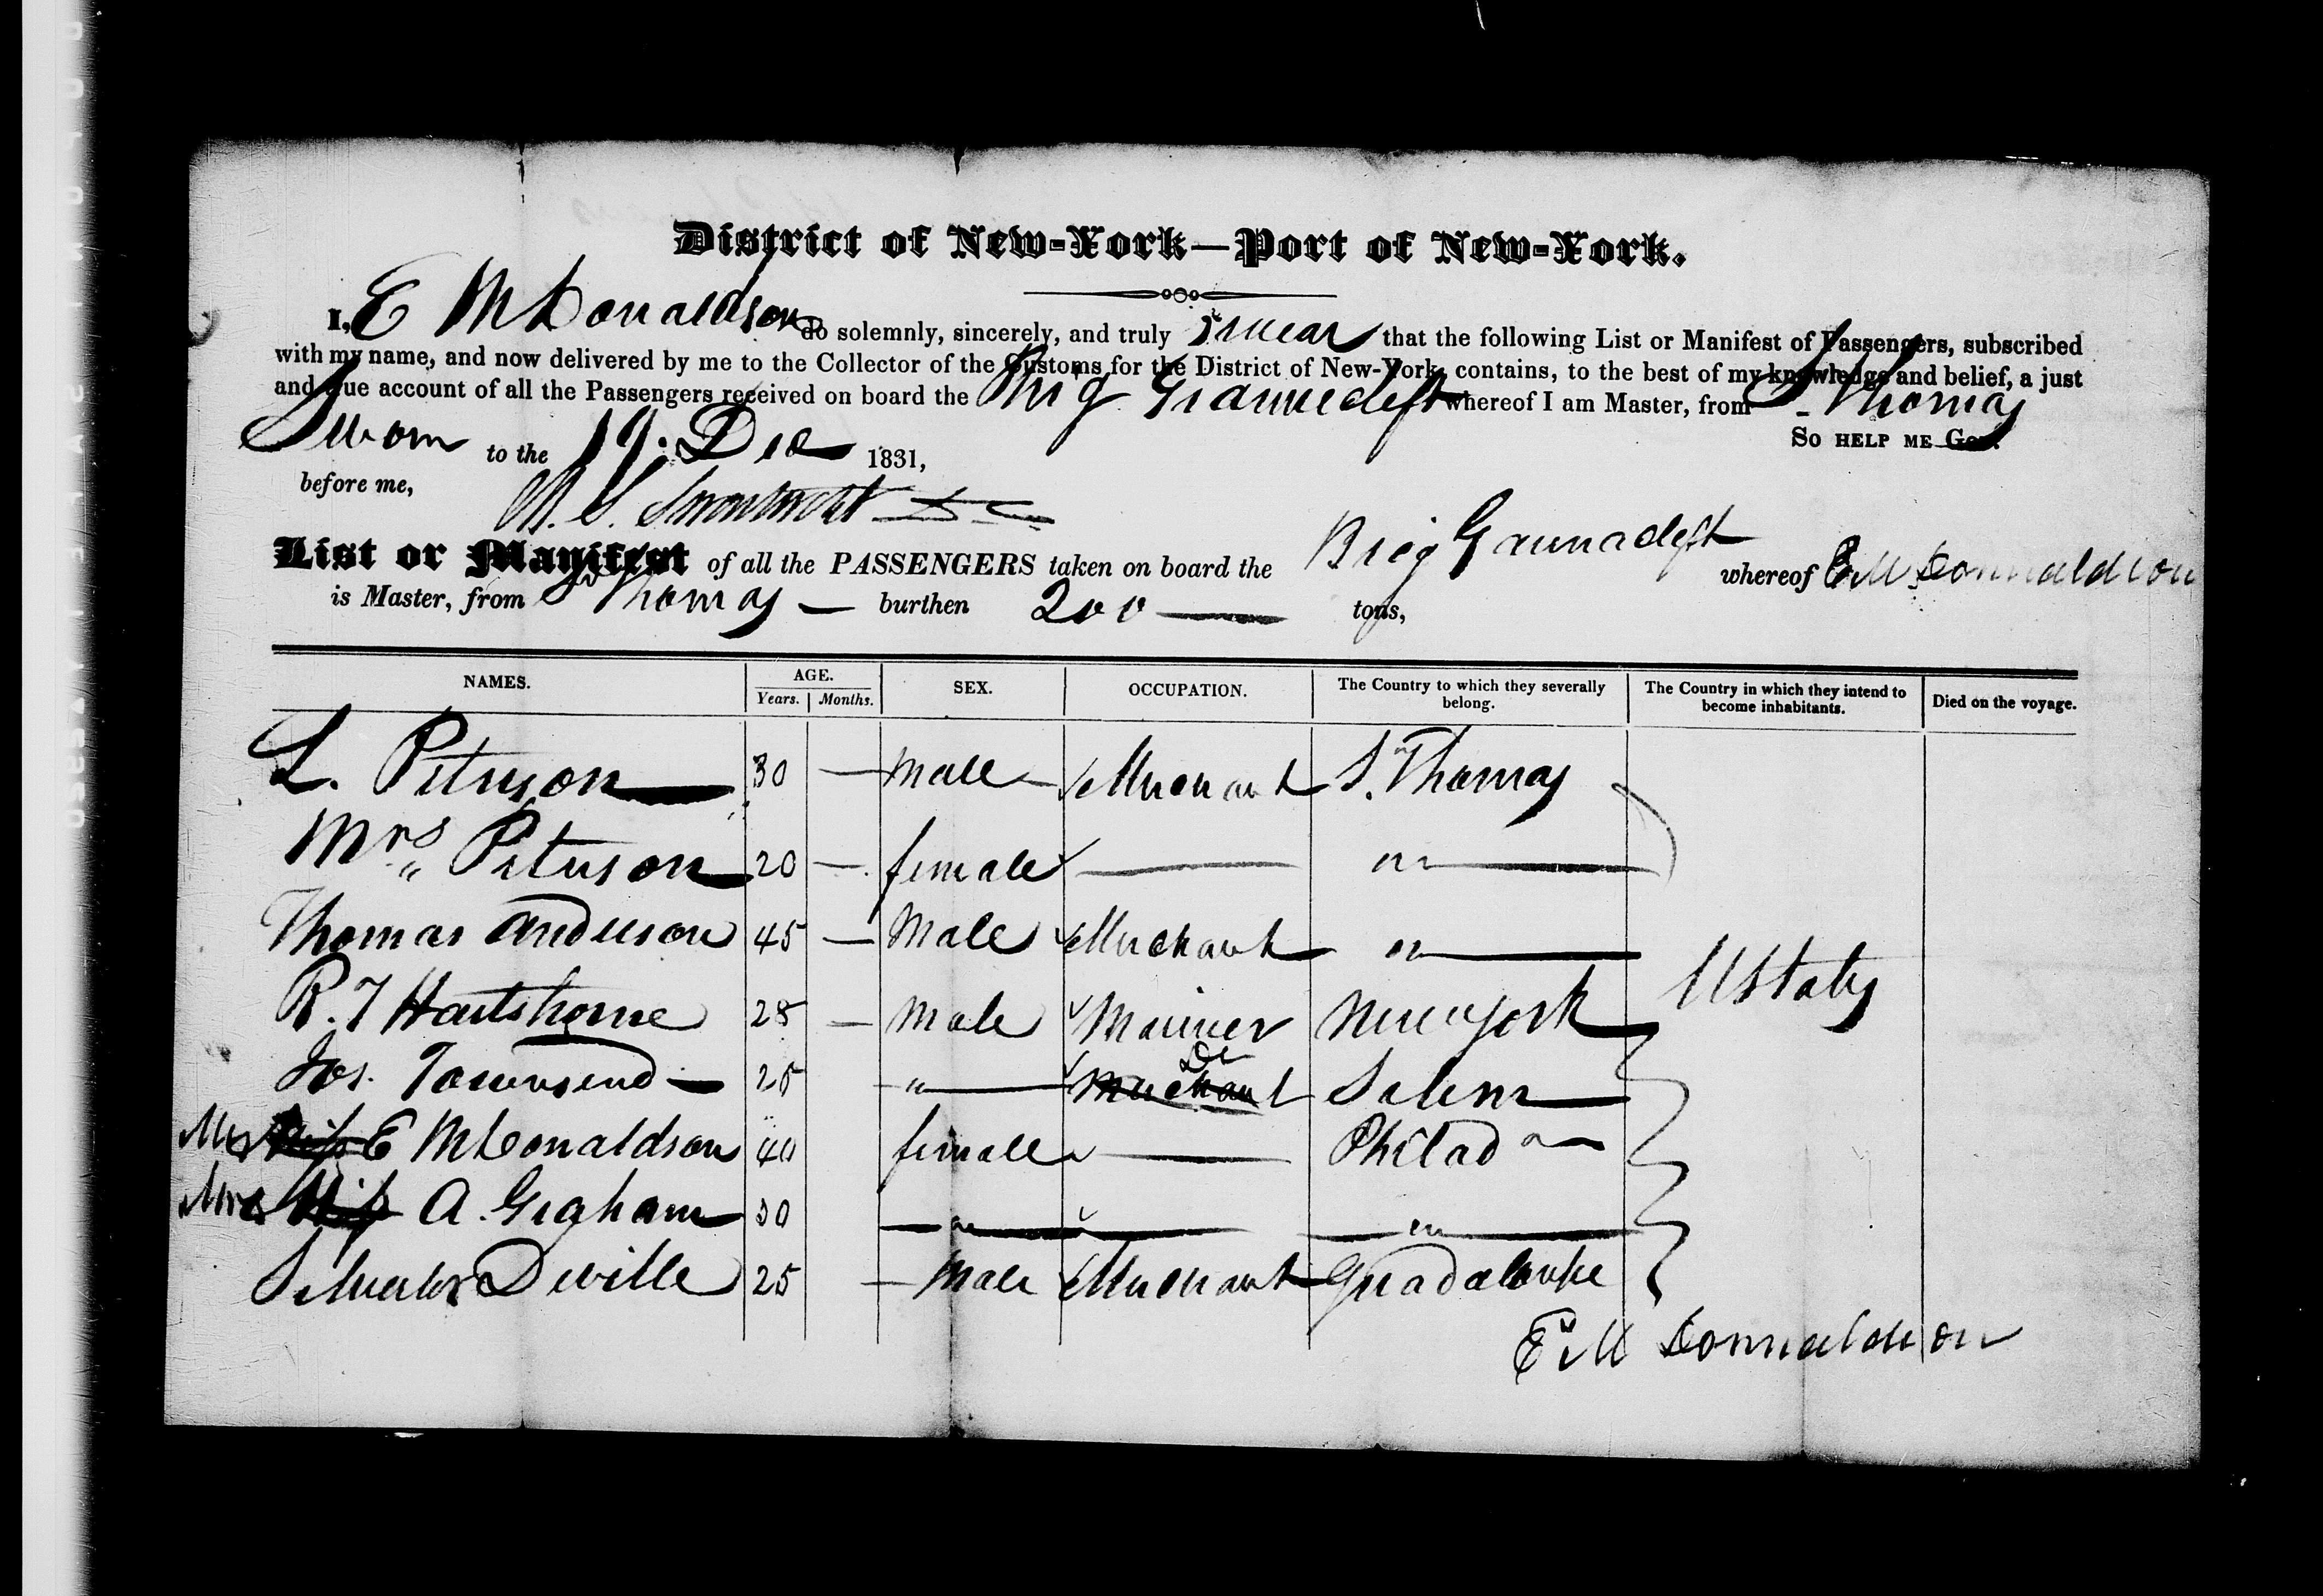 District of New-York—Port of New-York.
I, E McDonaldson do solemnly, sincerely, and truly swear that the following List or Manifest of Passengers, subscribed
with my name, and now delivered by me to the Collector of the Customs for the District of New-York, contains, to the best of my knowledge and belief, a just
and true account of all the Passengers received on board the Brig whereof I am Master, from St Thomas
So HELP ME God.
Sworn to the 19. Dec 1831,
before me,
List or Manifest of all the PASSENGERS taken on board the Brig whereof E M Donnaldson
is Master, from St Thomas — burthen 200 — tons,
NAMES. AGE. SEX. OCCUPATION. The Country to which they severally belong. The Country in which they intend to become inhabitants. Died on the voyage.
Years. Months.
L. Peterson 30 — male Merchant St. Thomas
Mrs " Peterson 20 — female — "
Thomas Anderson 45 — Male Merchant "
R. T Hartshorne 28 — Male Mariner New york U States
Jos. Townsend — 25 " Merchant Do Salem
Mrs Miss E McDonaldson 40 female — Philad
Mrs Miss A. Grgham 30 " — "
Deville 25 — Male Merchant Guadaloupe
E M Donnaldson